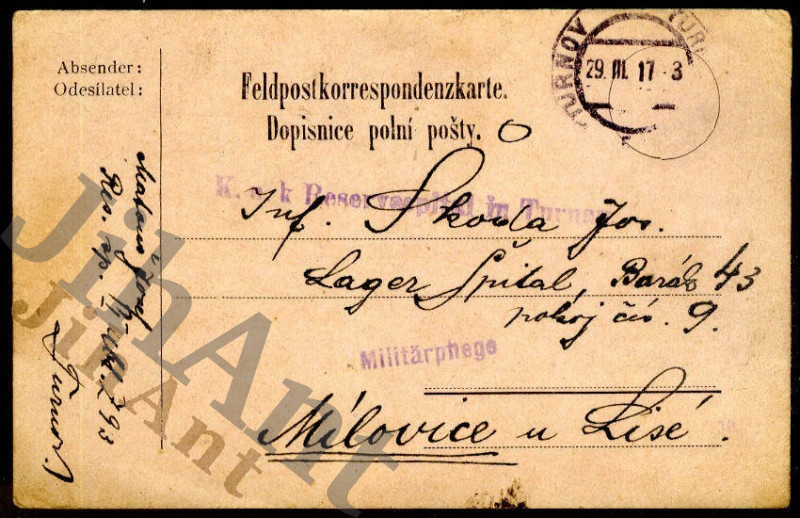 Absender:
Odesílatel:
Feldpostkorrespondenzkarte.
Dopisnice polní pošty.
TURNOV
29. III. 17 - 3
K. u. k Reservespital in Turnau
Inf. Škoda Jos.
Lager Spital, Barák 43
pokoj čís. 9.
Militärpflege
Milovice u Lisé.
Josef
Res. sp.
Turnov
JihAnt
JihAnt